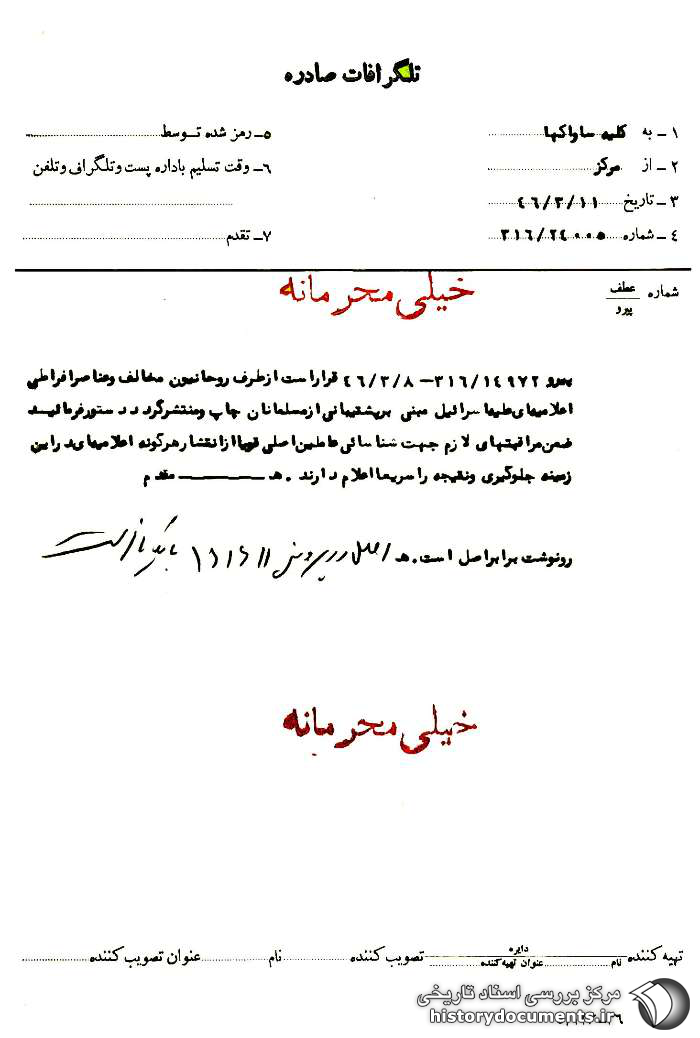 تلگرافات صادره
۱ـ به کلیه ساواکها
۲ـ از مرکز
۳ـ تاریخ ۴۶/۳/۱۱
۴ـ شماره ۳۱۶/۲۴۰۰۵
۵ـ رمز شده توسط
۶ـ وقت تسلیم باداره پست وتلگراف وتلفن
۷ـ تقدم
شماره عطف
پیرو
خیلی محرمانه
پیرو ۳۱۶/۱۴۹۷۲ – ۴۶/۳/۸ قراراست ازطرف روحانیون مخالف وعناصرافراطی
اعلامیه‌ای علیه اسرائیل مبنی برپشتیبانی ازمسلمانان چاپ ومنتشرگردد دستورفرمائید
ضمن مراقبتهای لازم جهت شناسائی عاملین اصلی قویا ازانتشار هرگونه اعلامیه‌ای دراین
زمینه جلوگیری ونتیجه را سریعا اعلام دارند . هـ ــــــــ مقدم
رونوشت برابراصل است . هـ اصل در پرونده
خیلی محرمانه
تهیه کننده
نام
دایره
عنوان تهیه کننده
تصویب کننده
نام
عنوان تصویب کننده
مرکز بررسی اسناد تاریخی
historydocuments.ir